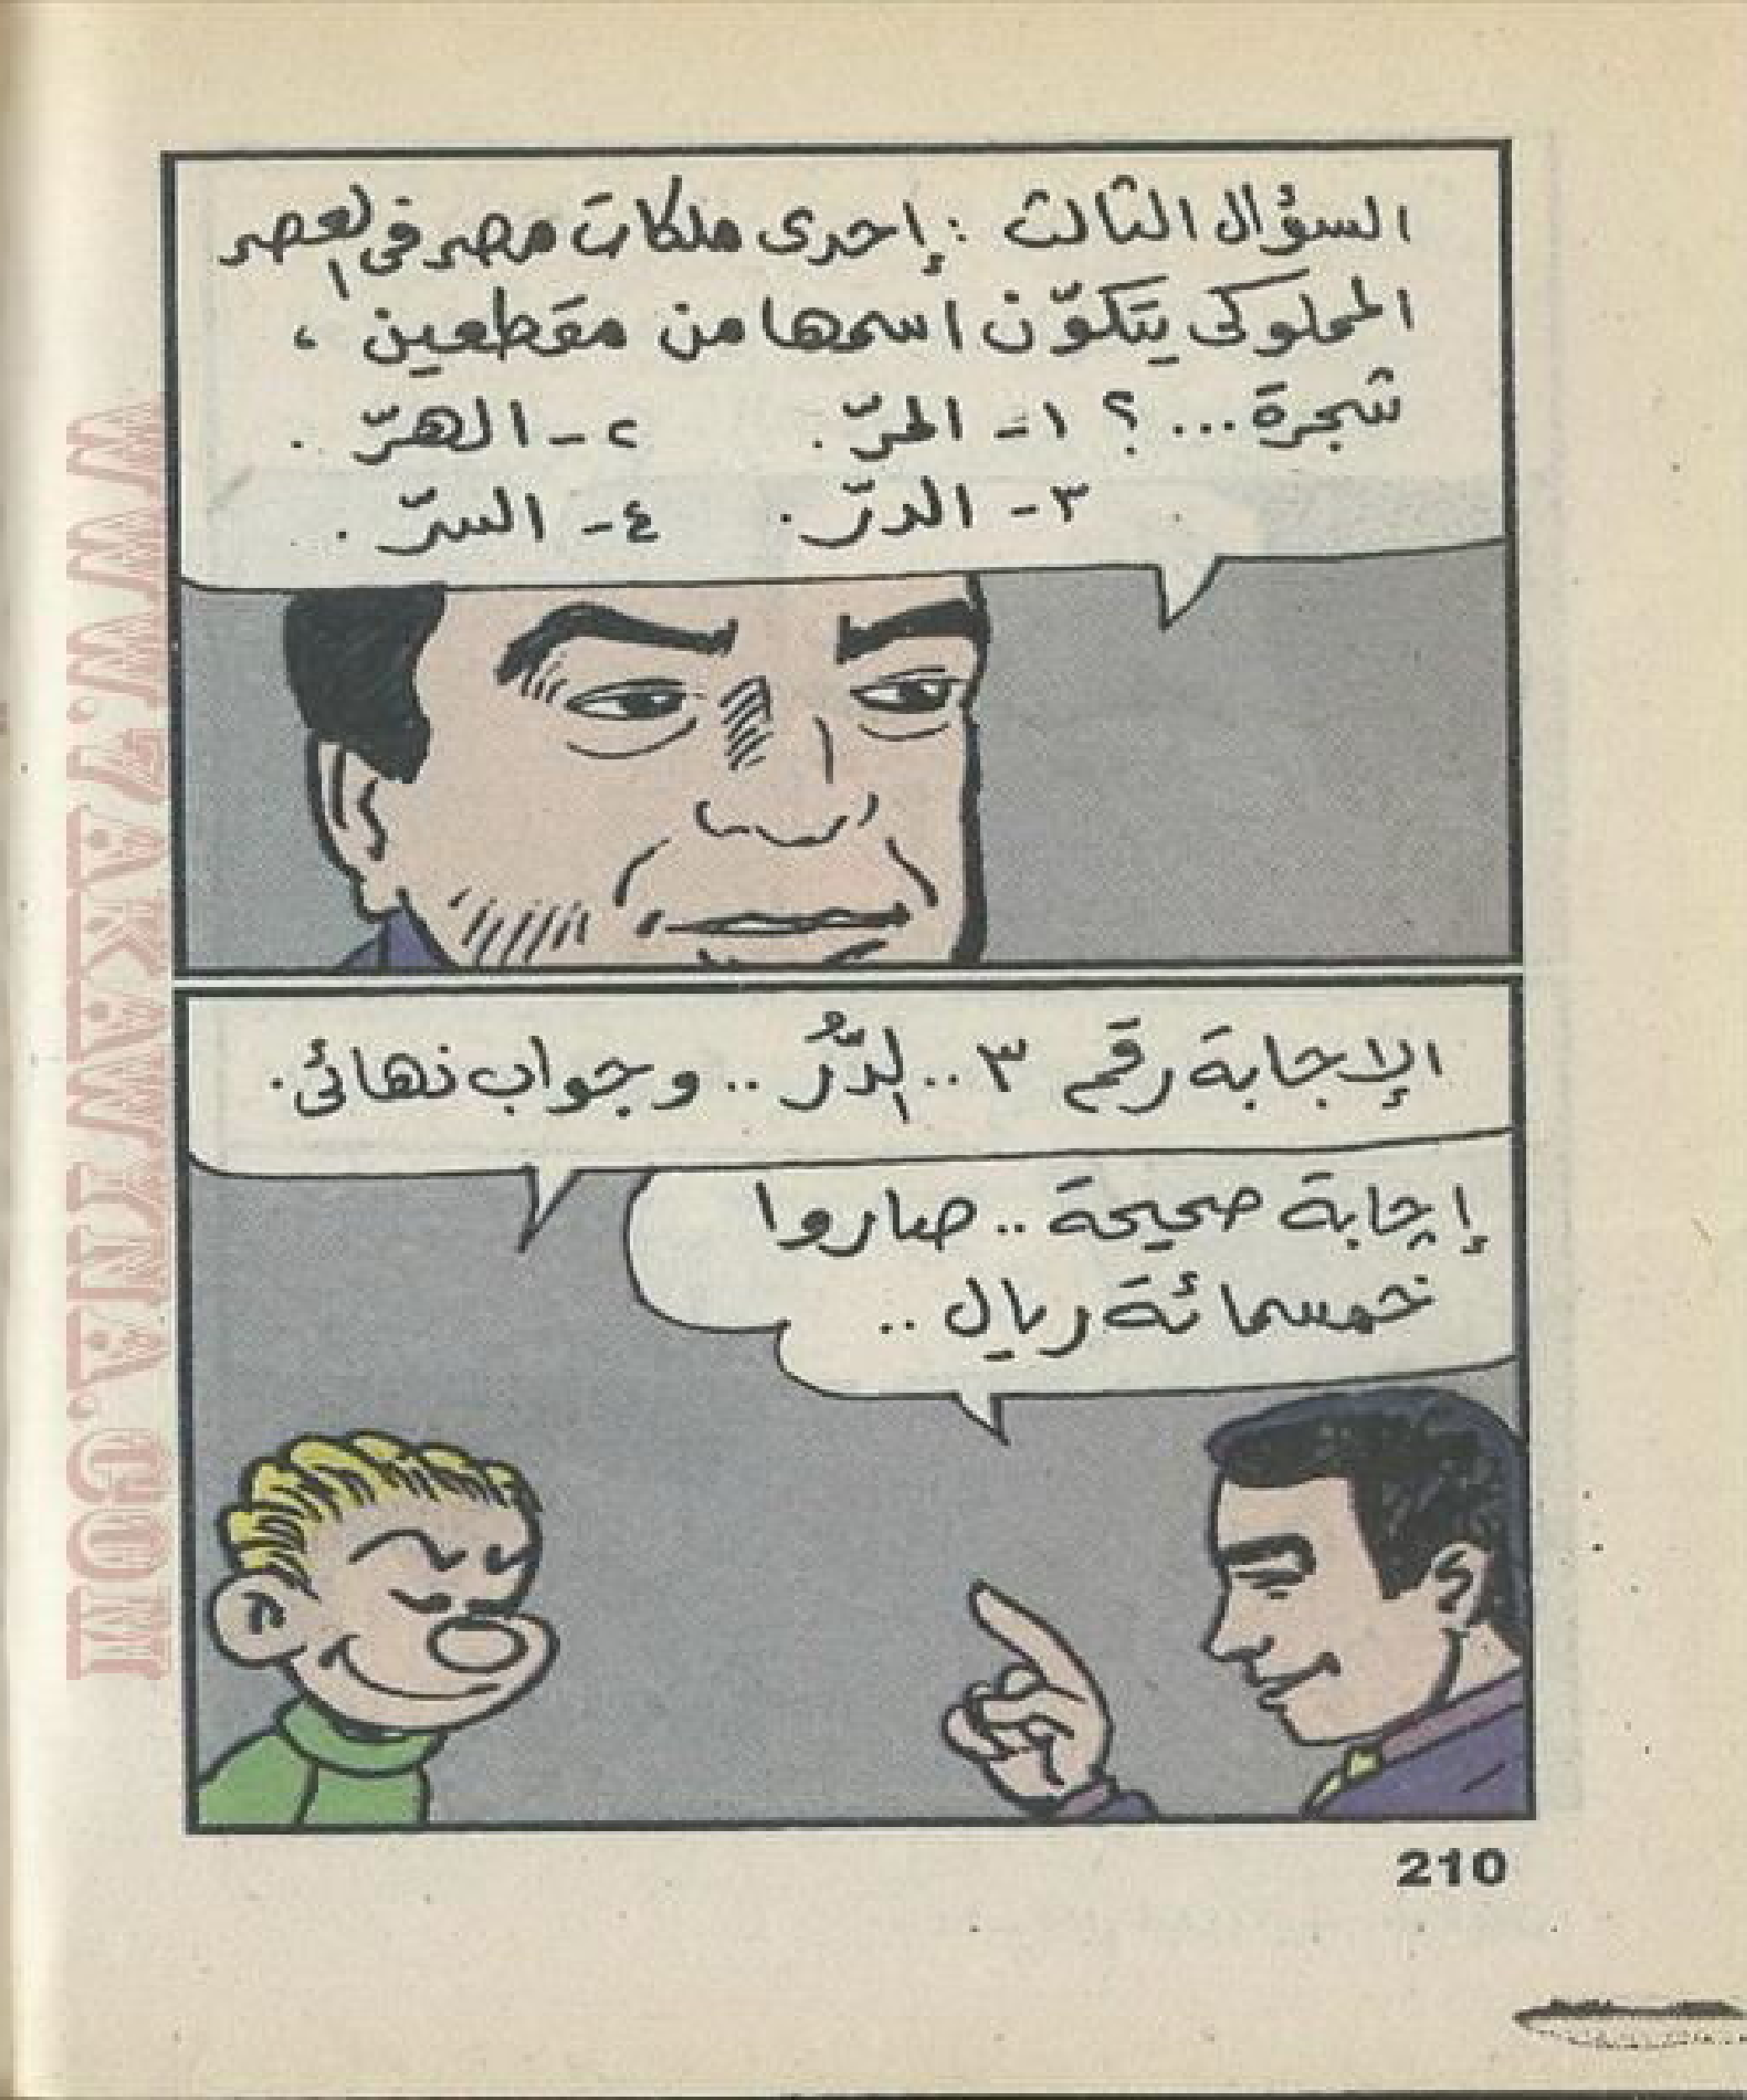 السؤال الثالث : إحدى ملكات مصر في العصر
المملوكي يتكوّن اسمها من مقطعين ،
شجرة ... ؟ ١- المرّ . ٢- الهرّ .
٣- الدرّ . ٤- السرّ .
الإجابة رقم ٣ .. الدُّرّ .. وجواب نهائي .
إجابة صحيحة .. صاروا
خمسمائة ريال ..
210
WWW.ZAKAWITNA.COM